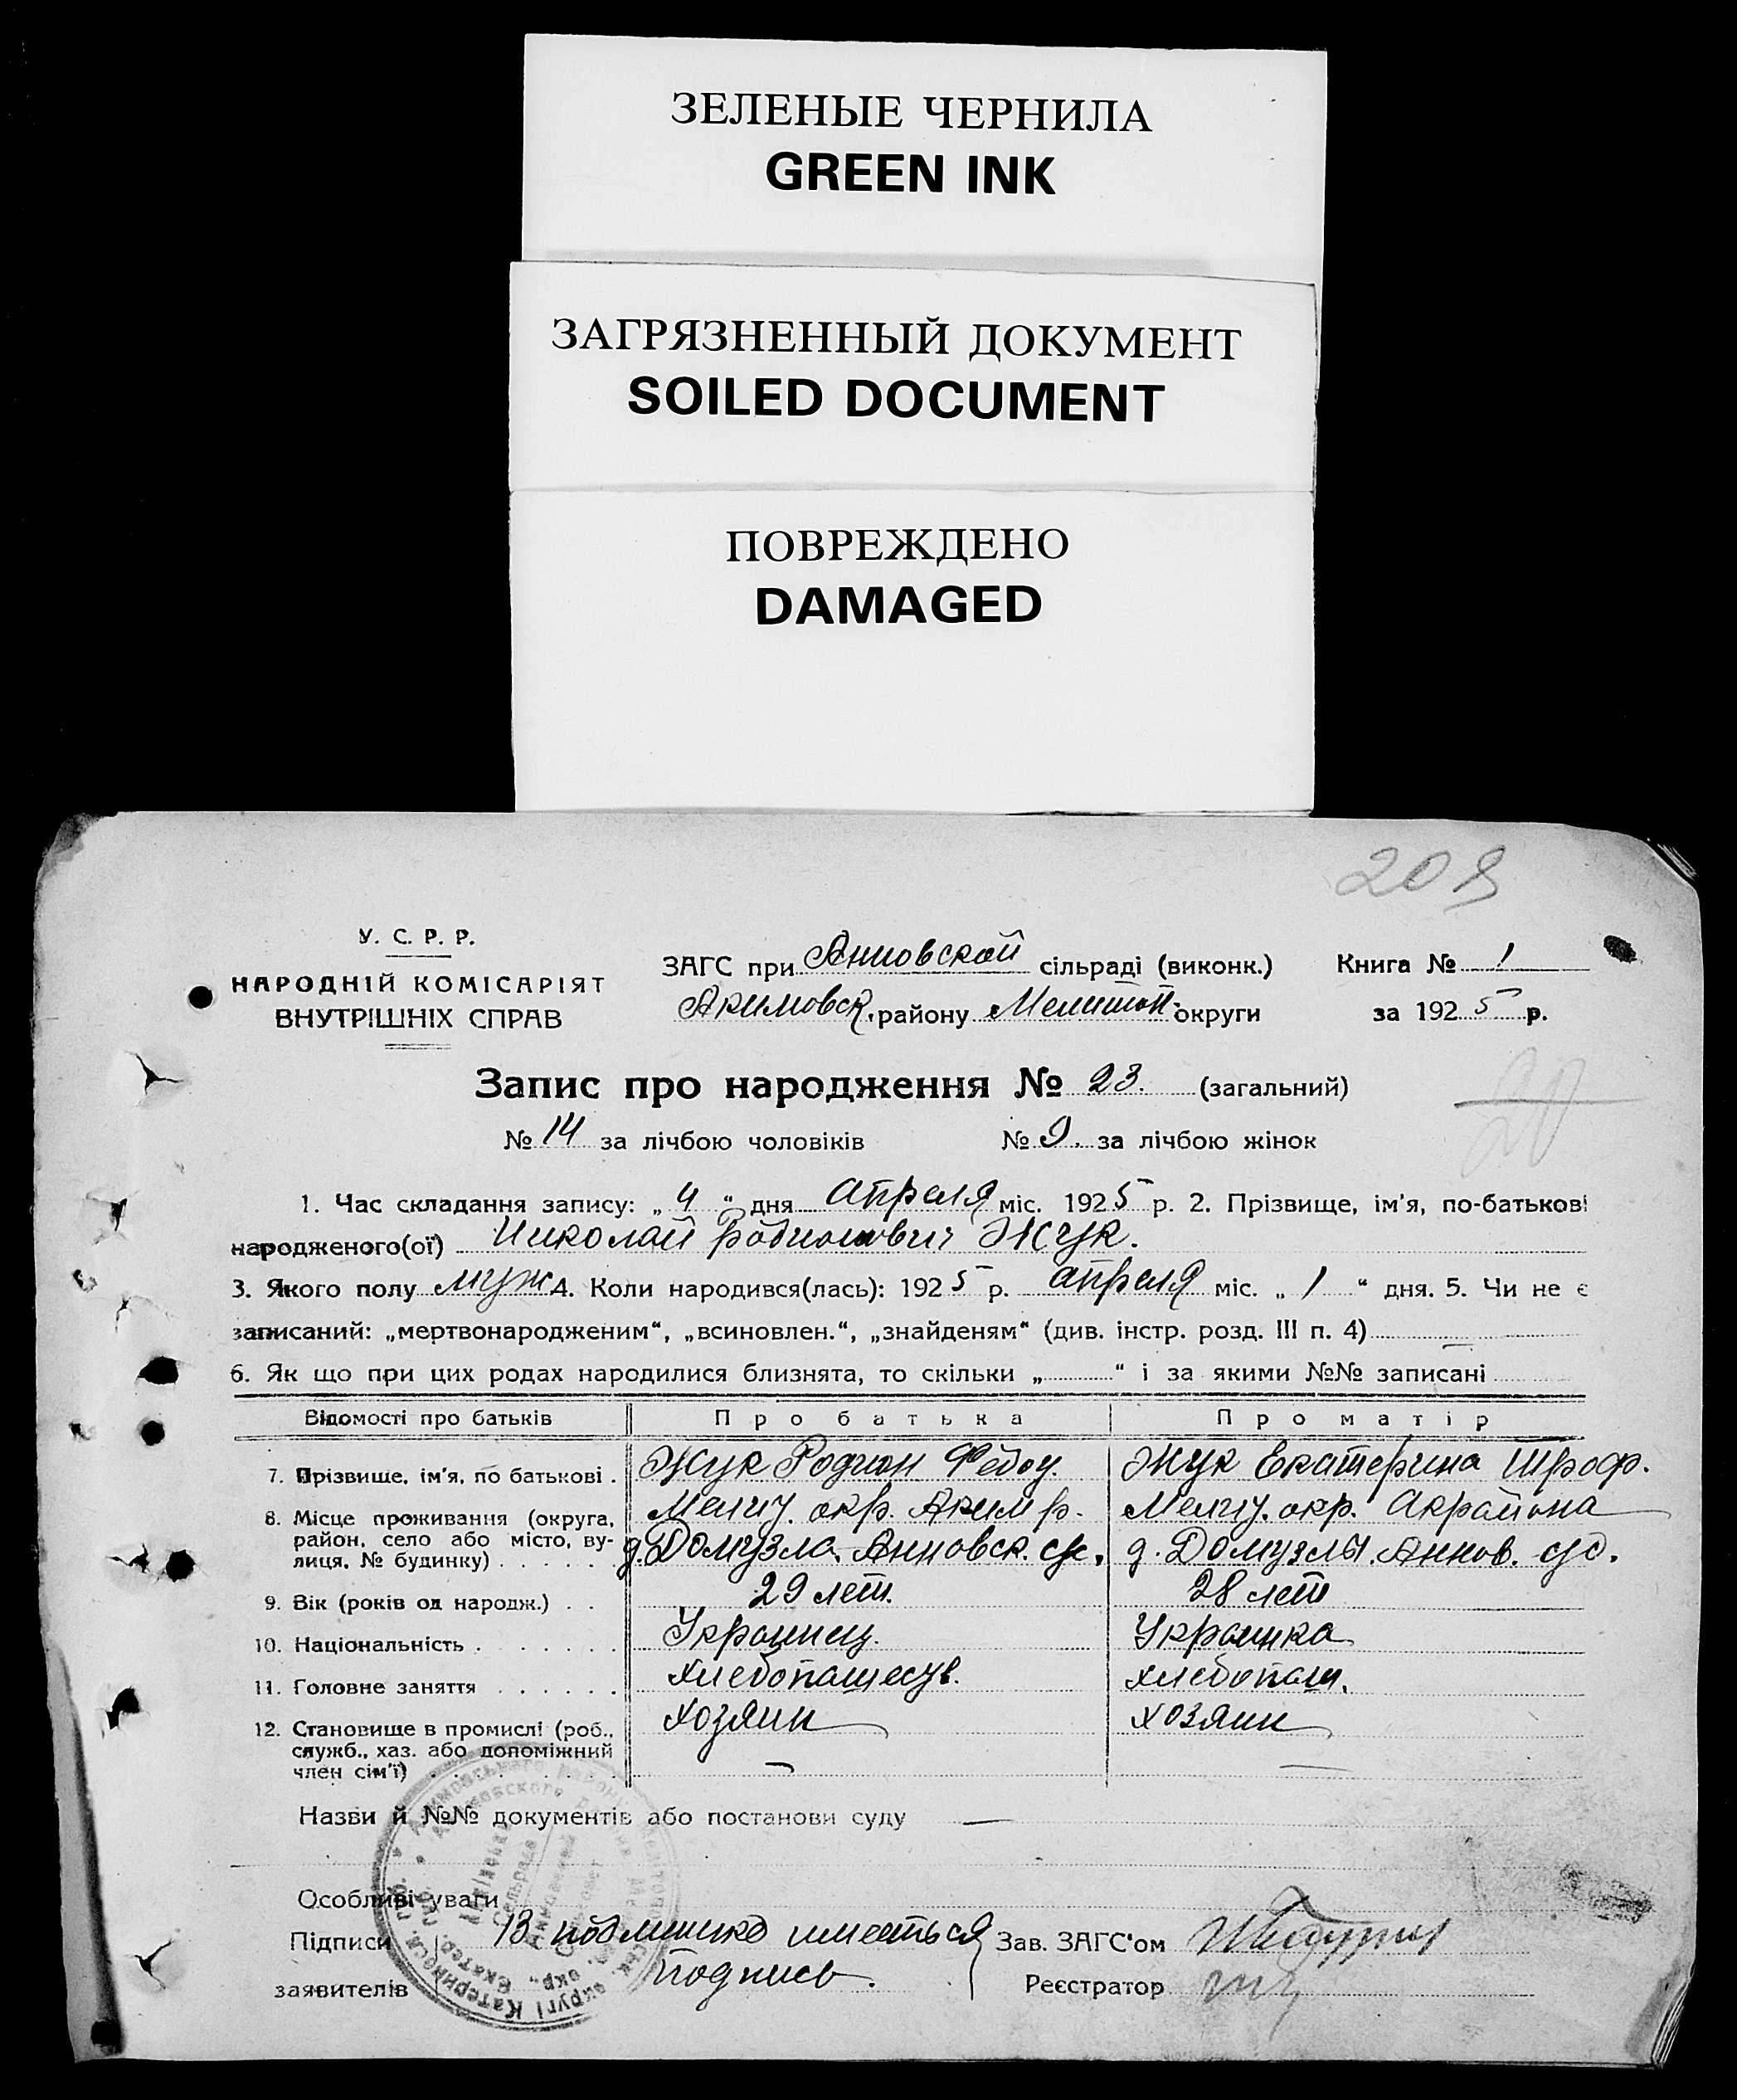 ЗЕЛЕНЫЕ ЧЕРНИЛА
GREEN INK
ЗАГРЯЗНЕННЫЙ ДОКУМЕНТ
SOILED DOCUMENT
ПОВРЕЖДЕНО
DAMAGED
209
У. С. Р. Р.
НАРОДНІЙ КОМІСАРІЯТ
ВНУТРІШНІХ СПРАВ
ЗАГС при Анновской сільраді (виконк.)
Акимовск. району Мелитоп. округи
Книга № 1
за 1925 р.
Запис про народження № 23. (загальний)
№ 14 за лічбою чоловіків № 9. за лічбою жінок
20
1. Час складання запису: „ 4 “ дня Апреля міс. 1925 р. 2. Прізвище, ім'я, по-батькові
народженого(ої) Николай Родионович Жук.
3. Якого полу муж 4. Коли народився(лась): 1925 р. апреля міс. „ 1 “ дня. 5. Чи не є
записаний: „мертвонародженим“, „всиновлен.“, „знайденям“ (див. інстр. розд. III п. 4) —
6. Як що при цих родах народилися близнята, то скільки „ “ і за якими №№ записані
Відомості про батьків Про батька Про матір
7. Прізвище, ім'я, по батькові . Жук Родион Федоу. Жук Екатерина Троф.
8. Місце проживання (округа, район, село або місто, вулиця, № будинку) Мелит. окр. Аким р. Мелит. окр. Акрайона
д. Домузла. Анновск. с/с. д. Домузлы. Аннов. с/с.
9. Вік (років од народж.) . . 29 лет. 28 лет
10. Національність . . . . . . Украинец. Украинка
11. Головне заняття . . . . . . хлебопашеств. хлебопаш.
12. Становище в промислі (роб., служб., хаз. або допоміжний член сім'ї) хозяин хозяин
Назви й №№ документів або постанови суду —
Особливі уваги
Підписи заявителів В подлинике имеється подпись.
Зав. ЗАГС'ом
Реєстратор